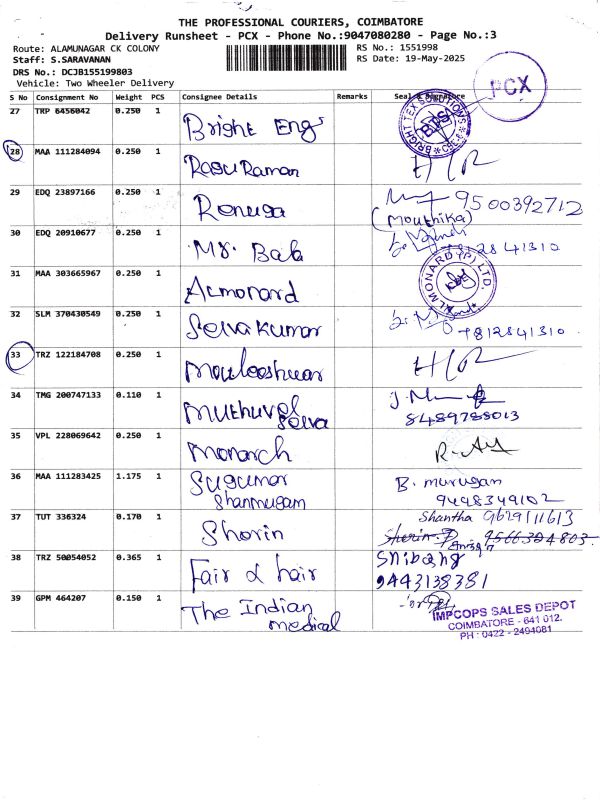 THE PROFESSIONAL COURIERS, COIMBATORE
Delivery Runsheet - PCX - Phone No.:9047080280 - Page No.:3
Route: ALAMUNAGAR CK COLONY
RS No.: 1551998
Staff: S.SARAVANAN
RS Date: 19-May-2025
DRS No.: DCJB155199803
Vehicle: Two Wheeler Delivery
PCX
S No Consignment No Weight PCS Consignee Details Remarks Seal & Signature
27 TRP 6456042 0.250 1 Bright Eng
BRIGHT TEX SOLUTIONS
BTS
28 MAA 111284094 0.250 1 Ragu Raman
29 EDQ 23897166 0.250 1 Renuga 9500392712
(Mouthika)
30 EDQ 20910677 0.250 1 Mr. Bala
31 MAA 303665967 0.250 1 Almonard
ALMONARD (P) LTD.
32 SLM 370430549 0.250 1 Selvakumar
7812841310
33 TRZ 122184708 0.250 1 Mouleeshwar
34 TMG 200747133 0.110 1 Muthuvel
Selva
8489788013
35 VPL 228069642 0.250 1 Monarch
36 MAA 111283425 1.175 1 Sugumar
Shanmugam
B. murugan
9498349102
37 TUT 336324 0.170 1 Sherin
Shantha 9629111613
Sherin.P 9566324803
38 TRZ 50054052 0.365 1 Fair & hair
9443138381
39 GPM 464207 0.150 1 The Indian
medical
IMPCOPS SALES DEPOT
COIMBATORE - 641 012.
PH : 0422 - 2494081